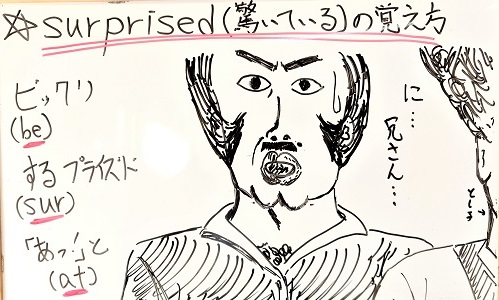 ☆surprised(驚いている)の覚え方
ビックリ
(be)
する プライズド
(sur)
「あっ!」と
(at)
に…
兄さん…
とし子→